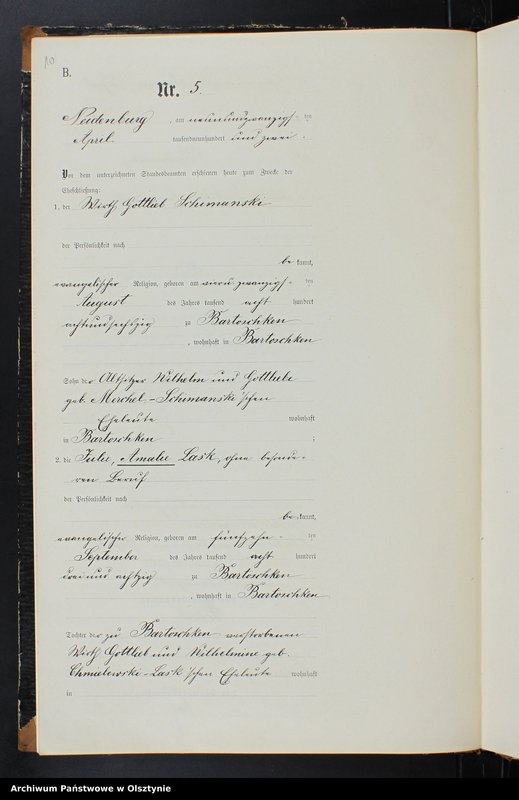 10
B.
Nr. 5.
Neidenburg, am neunundzwanzigs-ten
April tausendneunhundert und zwei.
Vor dem unterzeichneten Standesbeamten erschienen heute zum Zwecke der
Eheschließung:
1. der Wirth Gottlieb Schimanski
der Persönlichkeit nach
be kannt,
evangelischer Religion, geboren am vierundzwanzigs-ten
August des Jahres tausend acht hundert
achtundsechszig zu Bartoschken
, wohnhaft in Bartoschken
Sohn der Altsitzer Wilhelm und Gottliebe
geb. Merchel-Schimanski'schen
Eheleute wohnhaft
in Bartoschken ;
2. die Julie, Amalie Lask, ohne besonde-
ren Beruf
der Persönlichkeit nach
be kannt,
evangelischer Religion, geboren am fünfzehn-ten
September des Jahres tausend acht hundert
dreiundachtzig zu Bartoschken
, wohnhaft in Bartoschken
Tochter der zu Bartoschken verstorbenen
Wirth Gottlieb und Wilhelmine geb.
Chmielewski-Lask'schen Eheleute wohnhaft
in
Archiwum Państwowe w Olsztynie